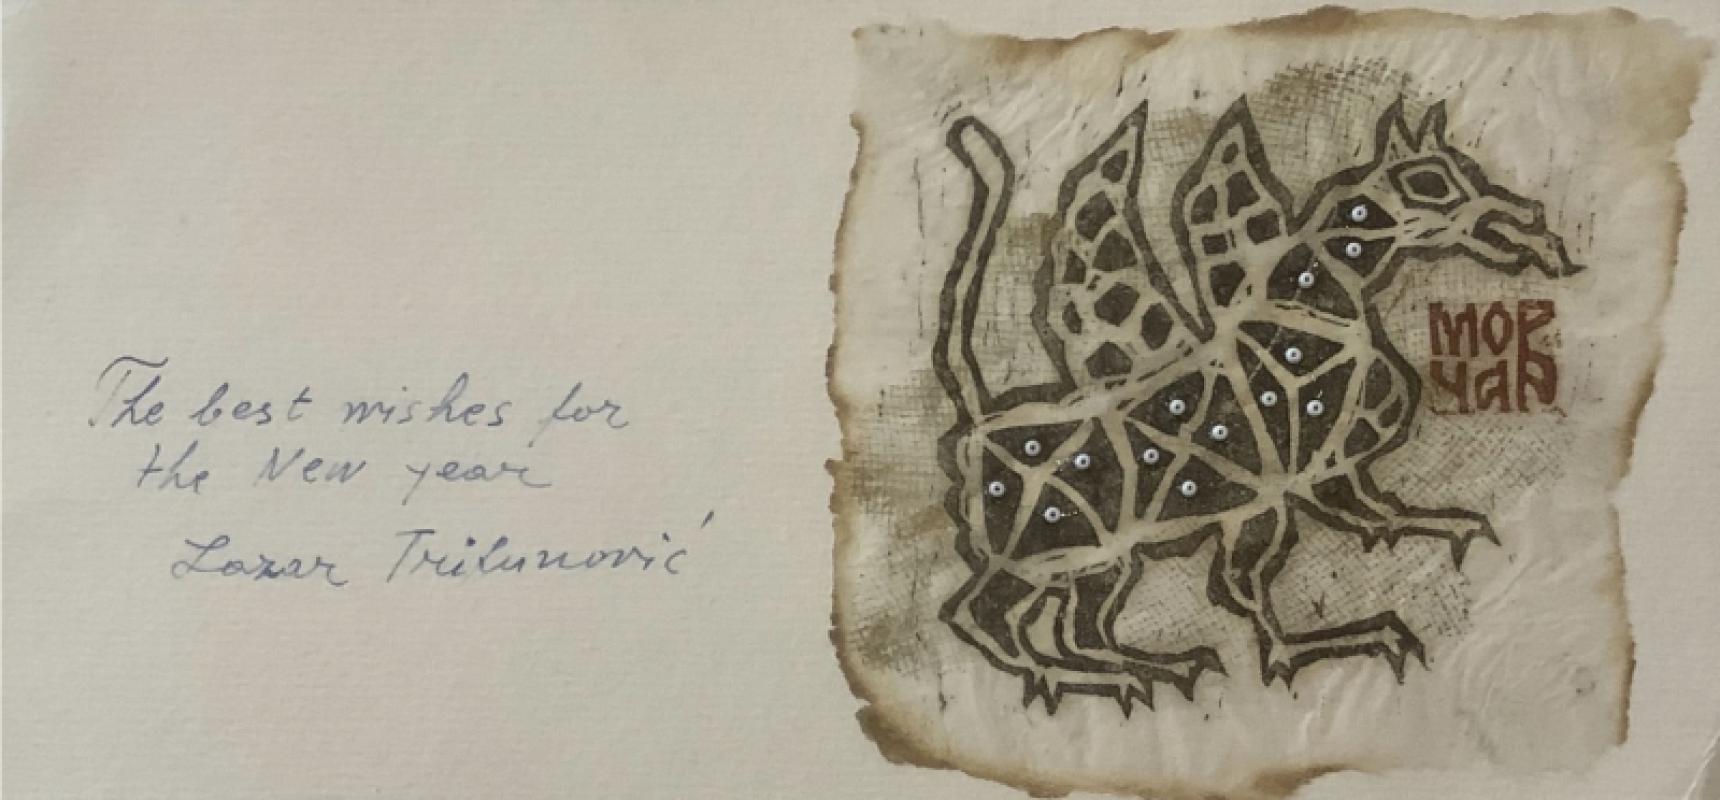 The best wishes for
the New year
Lazar Trifunović
МОР
ЧАР